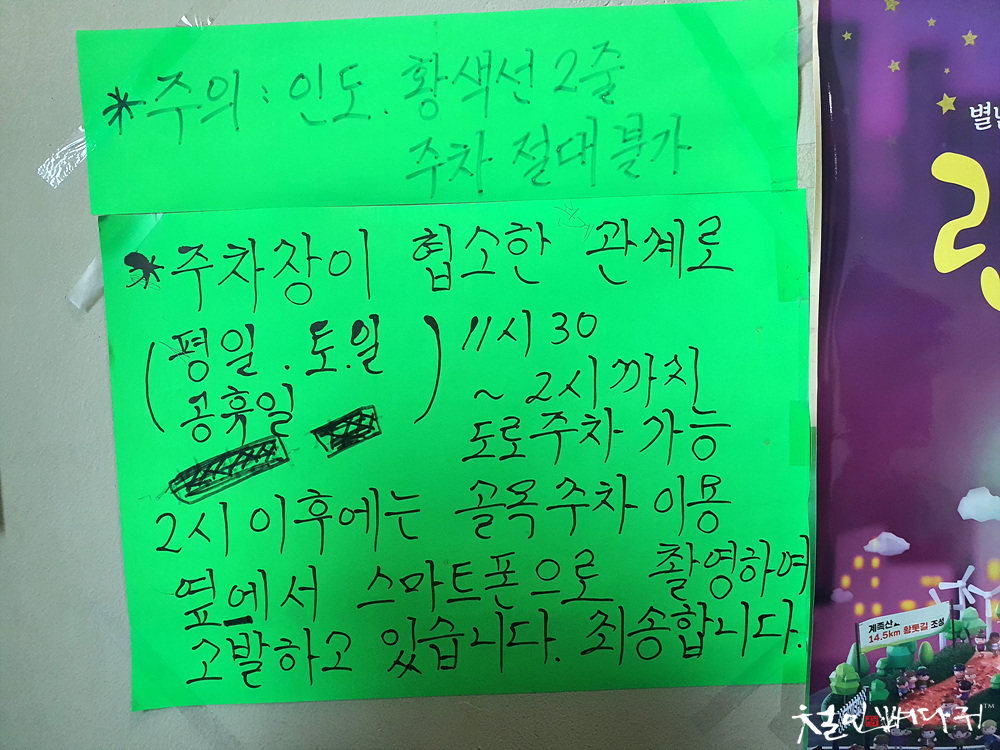 *주의 : 인도. 황색선 2줄
주차 절대 불가
*주차장이 협소한 관계로
(평일. 토. 일
공휴일)
11시 30
~ 2시까지
도로주차 가능
2시 이후에는 골목주차 이용
옆에서 스마트폰으로 촬영하여
고발하고 있습니다. 죄송합니다.
별난
계족산
14.5km 황톳길 조성